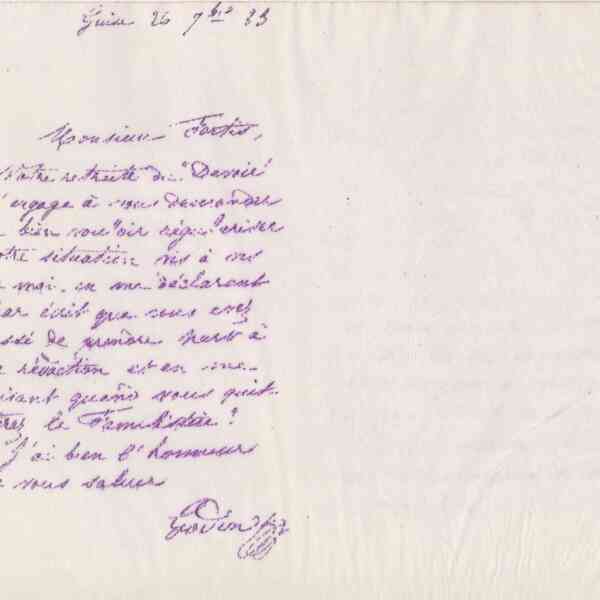 Guise 26 7bre 83
Monsieur Fortis,
Votre retraite du "Devoir"
m'engage à vous demander
bien vouloir régulariser
otre situation vis à vis
e moi, en me déclarant
par écrit que vous avez
ssé de prendre part à
a rédaction et en me
isant quand vous quit-
terez le Familistère?
J'ai bien l'honneur
e vous saluer
Godin